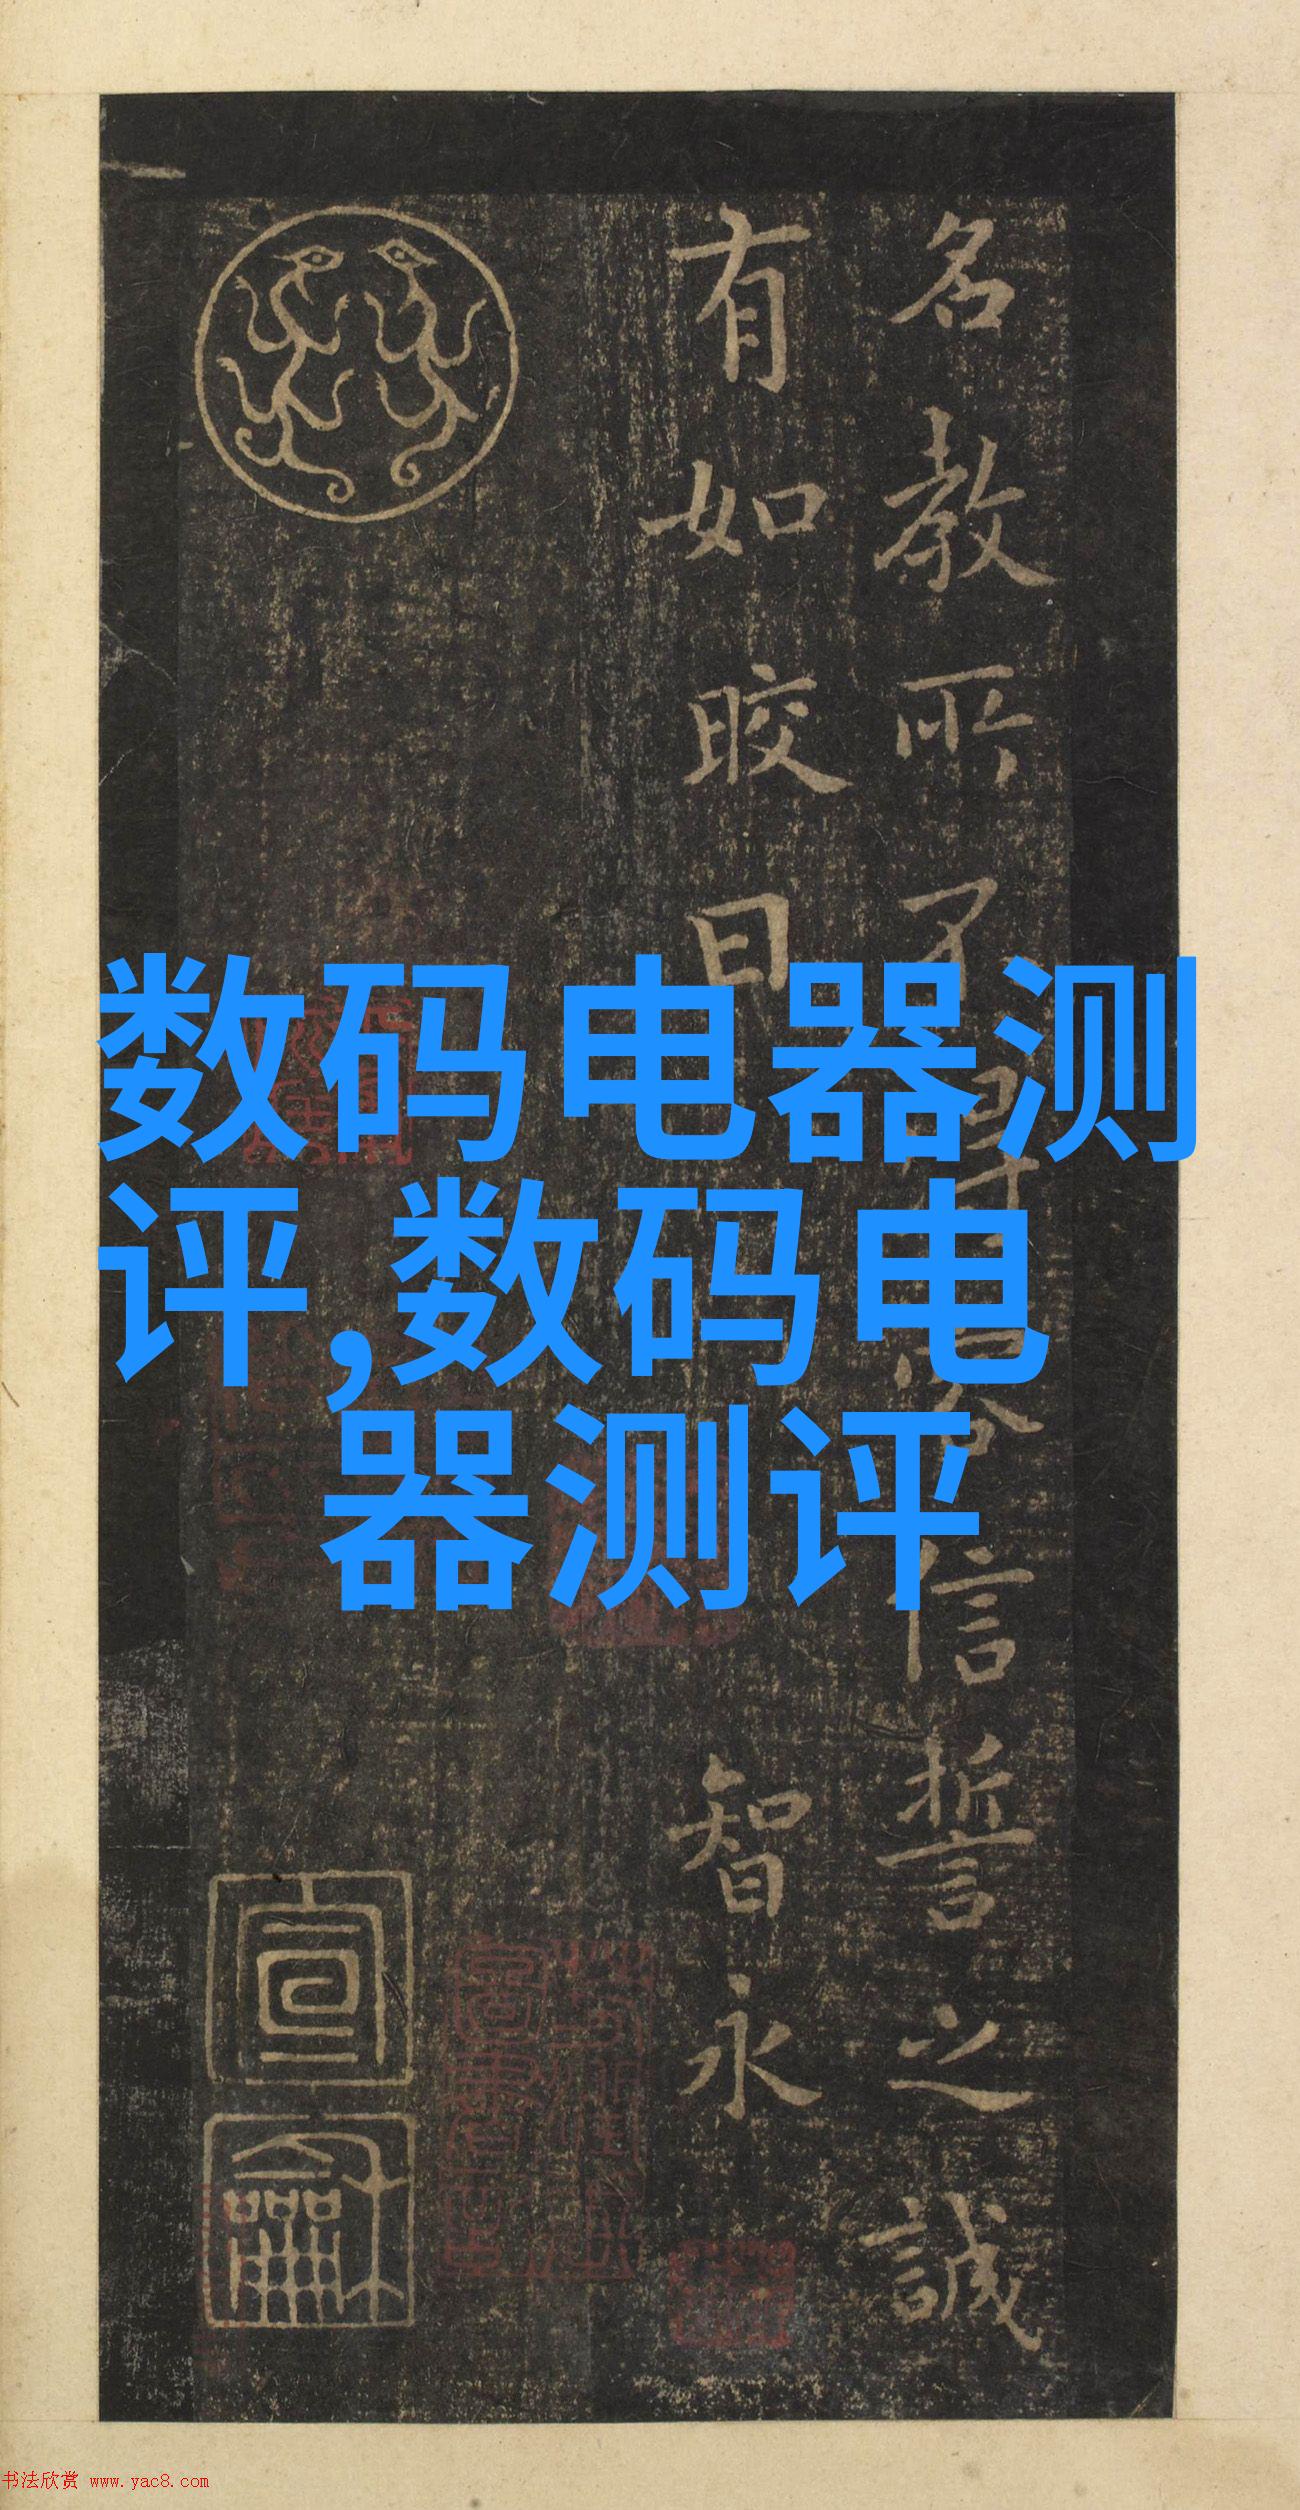 名教所不得容信誓之誠
有如晈日
智永
宣
龢
数码电器测
评,数码电
器测评
书法欣赏 www.yac8.com